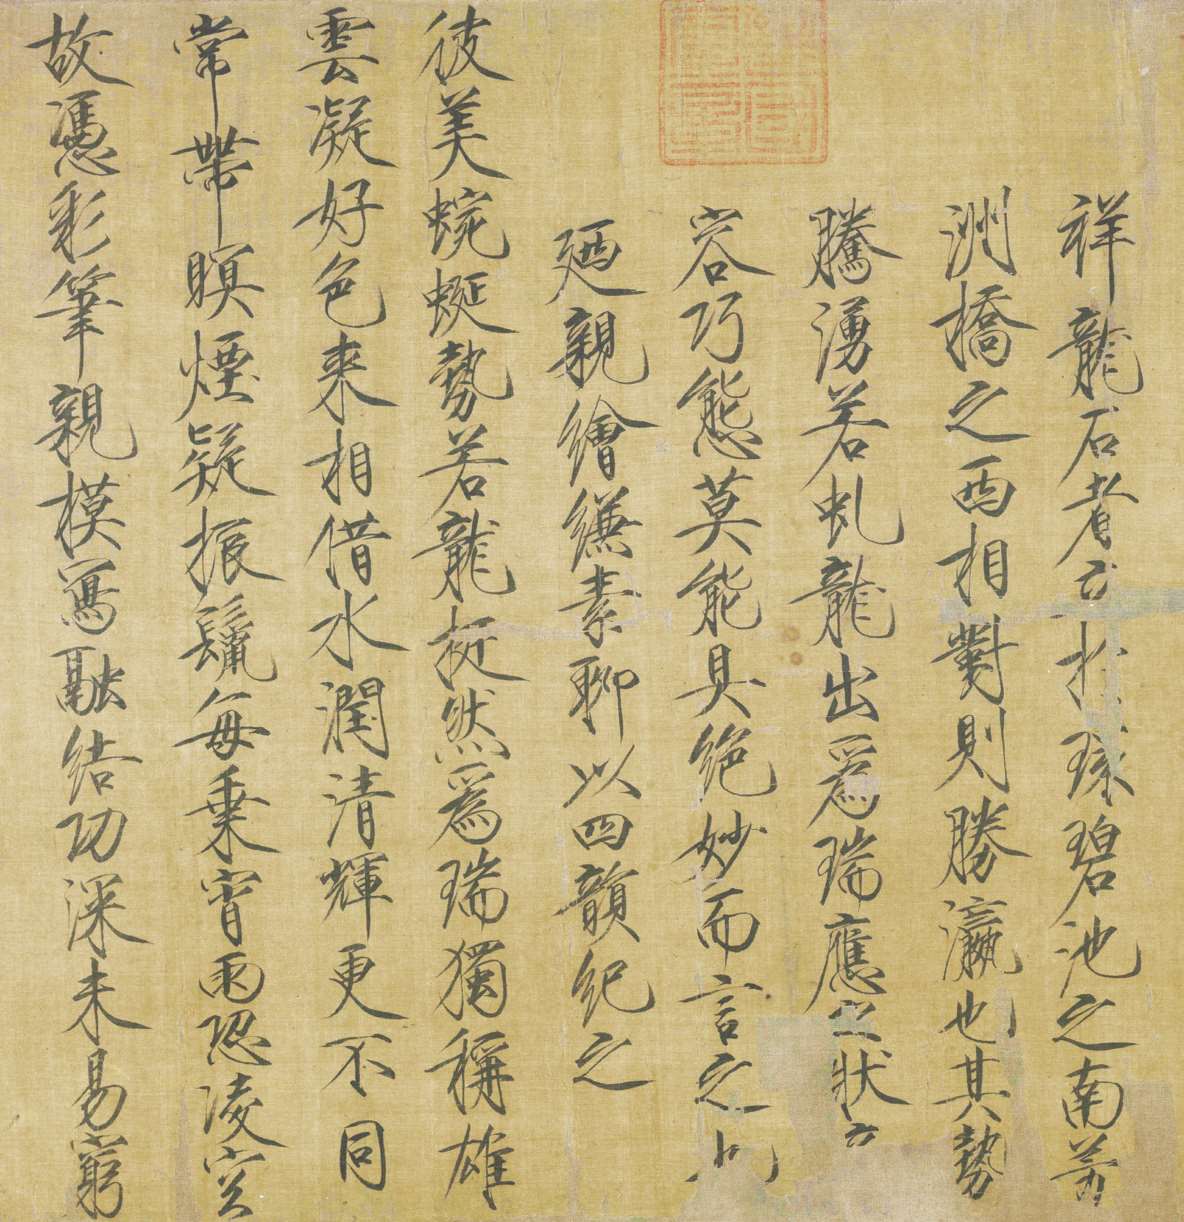 祥龍石者立於環碧池之南芳
洲橋之西相對則勝瀛也其勢
騰湧若虬龍出爲瑞應之狀奇
容巧態莫能具絕妙而言之也
廼親繪縑素聊以四韻紀之
彼美蜿蜒勢若龍挺然爲瑞獨稱雄
雲凝好色來相借水潤清輝更不同
常帶暝煙疑振鬣每乘宵雨恐凌空
故憑彩筆親模寫融結功深未易窮